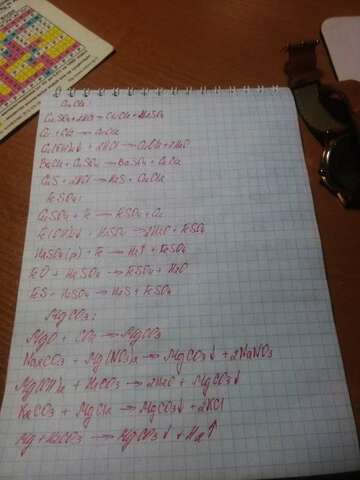 CuCl₂:
CuSO₄ + 2HCl → CuCl₂ + H₂SO₄
Cu + Cl₂ → CuCl₂
Cu(OH)₂↓ + 2HCl → CuCl₂ + 2H₂O
BaCl₂ + CuSO₄ → BaSO₄ + CuCl₂
CuS + 2HCl → H₂S + CuCl₂
FeSO₄:
CuSO₄ + Fe → FeSO₄ + Cu
Fe(OH)₂↓ + H₂SO₄ → 2H₂O + FeSO₄
H₂SO₄(р) + Fe → H₂↑ + FeSO₄
FeO + H₂SO₄ → FeSO₄ + H₂O
FeS + H₂SO₄ → H₂S + FeSO₄
MgCO₃:
MgO + CO₂ → MgCO₃
Na₂CO₃ + Mg(NO₃)₂ → MgCO₃↓ + 2NaNO₃
Mg(OH)₂ + H₂CO₃ → 2H₂O + MgCO₃↓
K₂CO₃ + MgCl₂ → MgCO₃↓ + 2KCl
Mg + H₂CO₃ → MgCO₃↓ + H₂↑